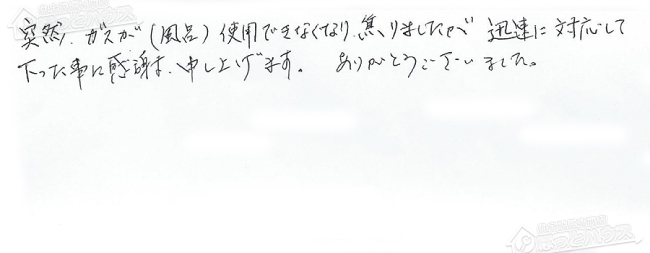 突然、ガスが(風呂)使用できなくなり、焦りましたが 迅速に対応して
下った事に感謝申し上げます。 ありがとうございました。